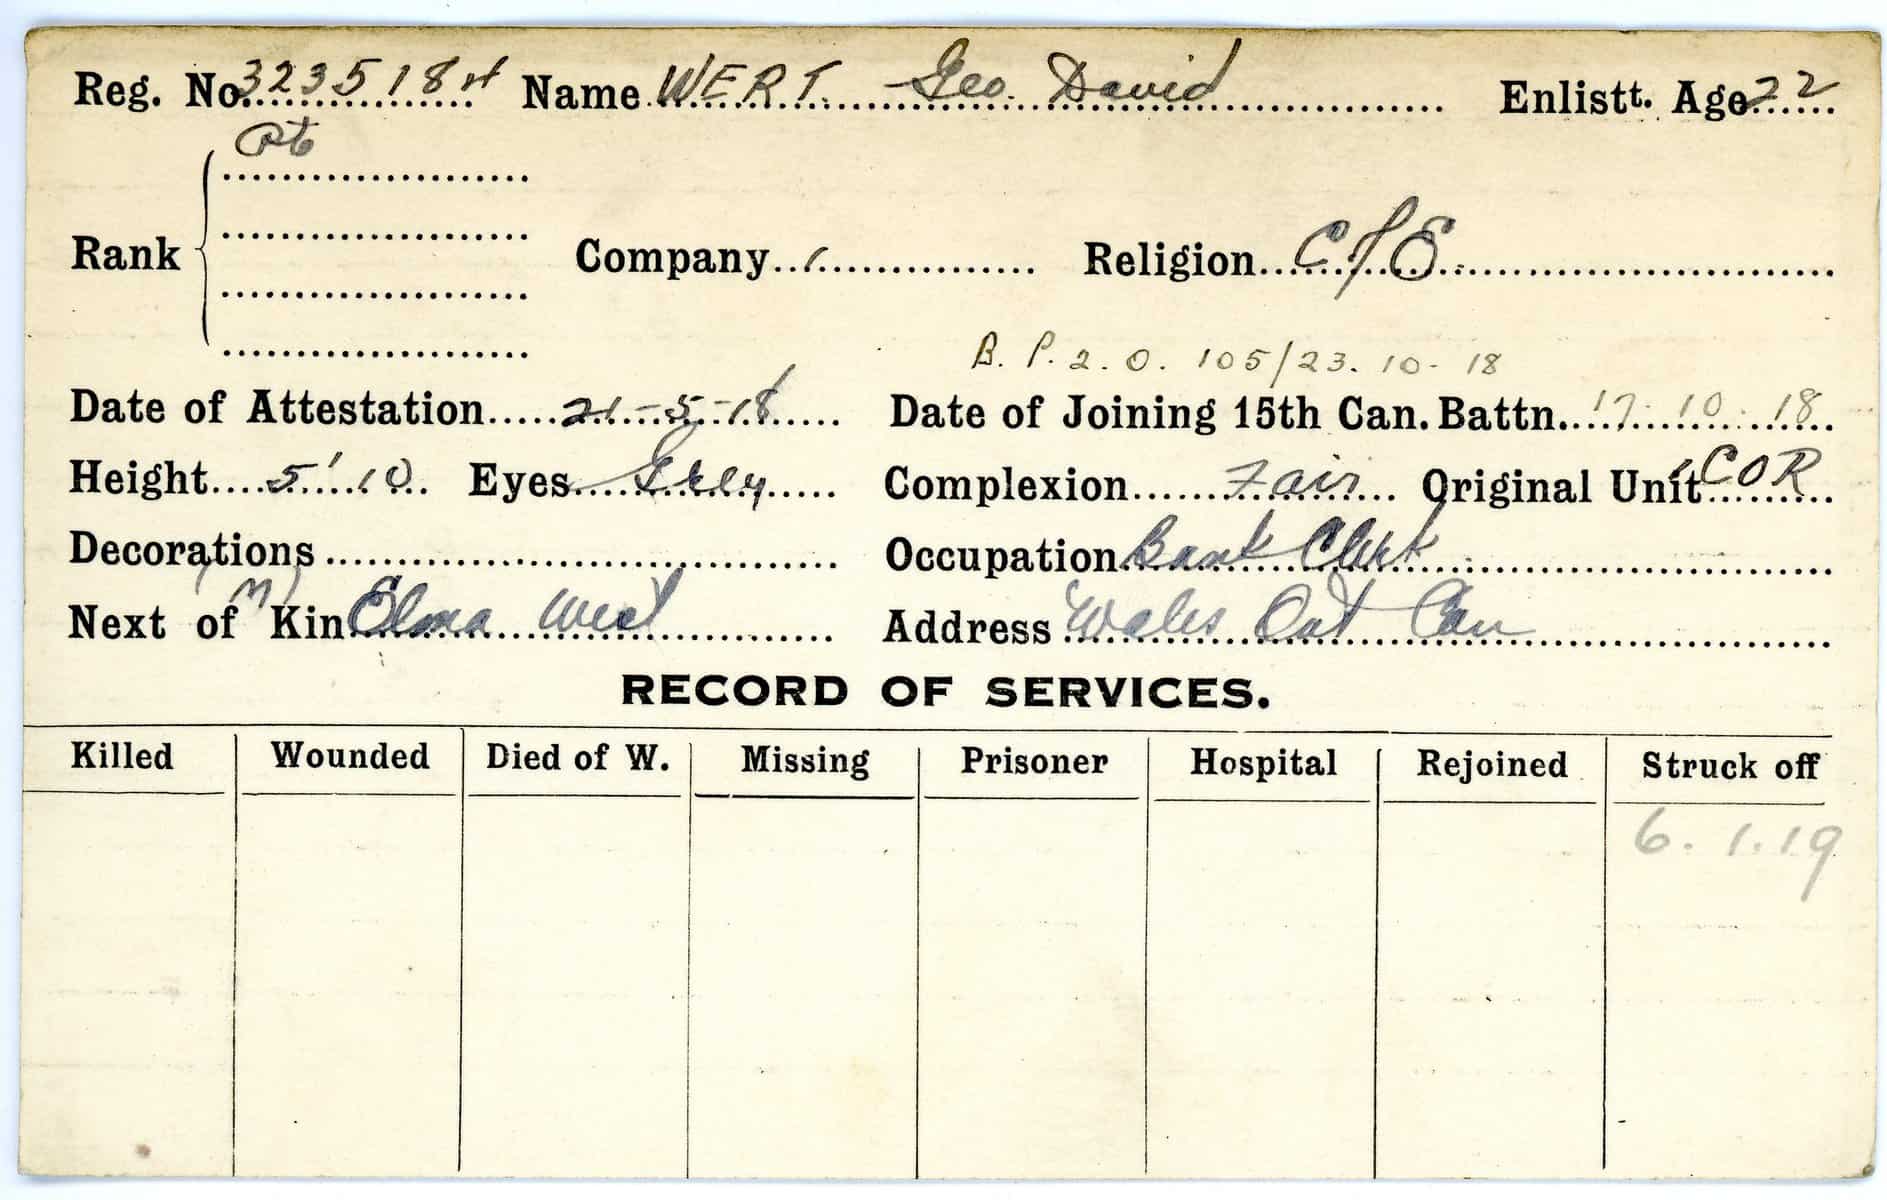 Reg. No. 3235184 Name WERT Geo. David Enlistt. Age 22
Pte
Rank Company 1 Religion C/E
B. P. 2. O. 105/23. 10- 18
Date of Attestation 21-5-18 Date of Joining 15th Can. Battn. 17. 10. 18
Height 5'10 Eyes Grey Complexion Fair Original Unit 1 COR
Decorations Occupation Bank Clerk
(m)
Next of Kin Elma Wert Address Wales Ont Can
RECORD OF SERVICES.
Killed Wounded Died of W. Missing Prisoner Hospital Rejoined Struck off
6. 1. 19